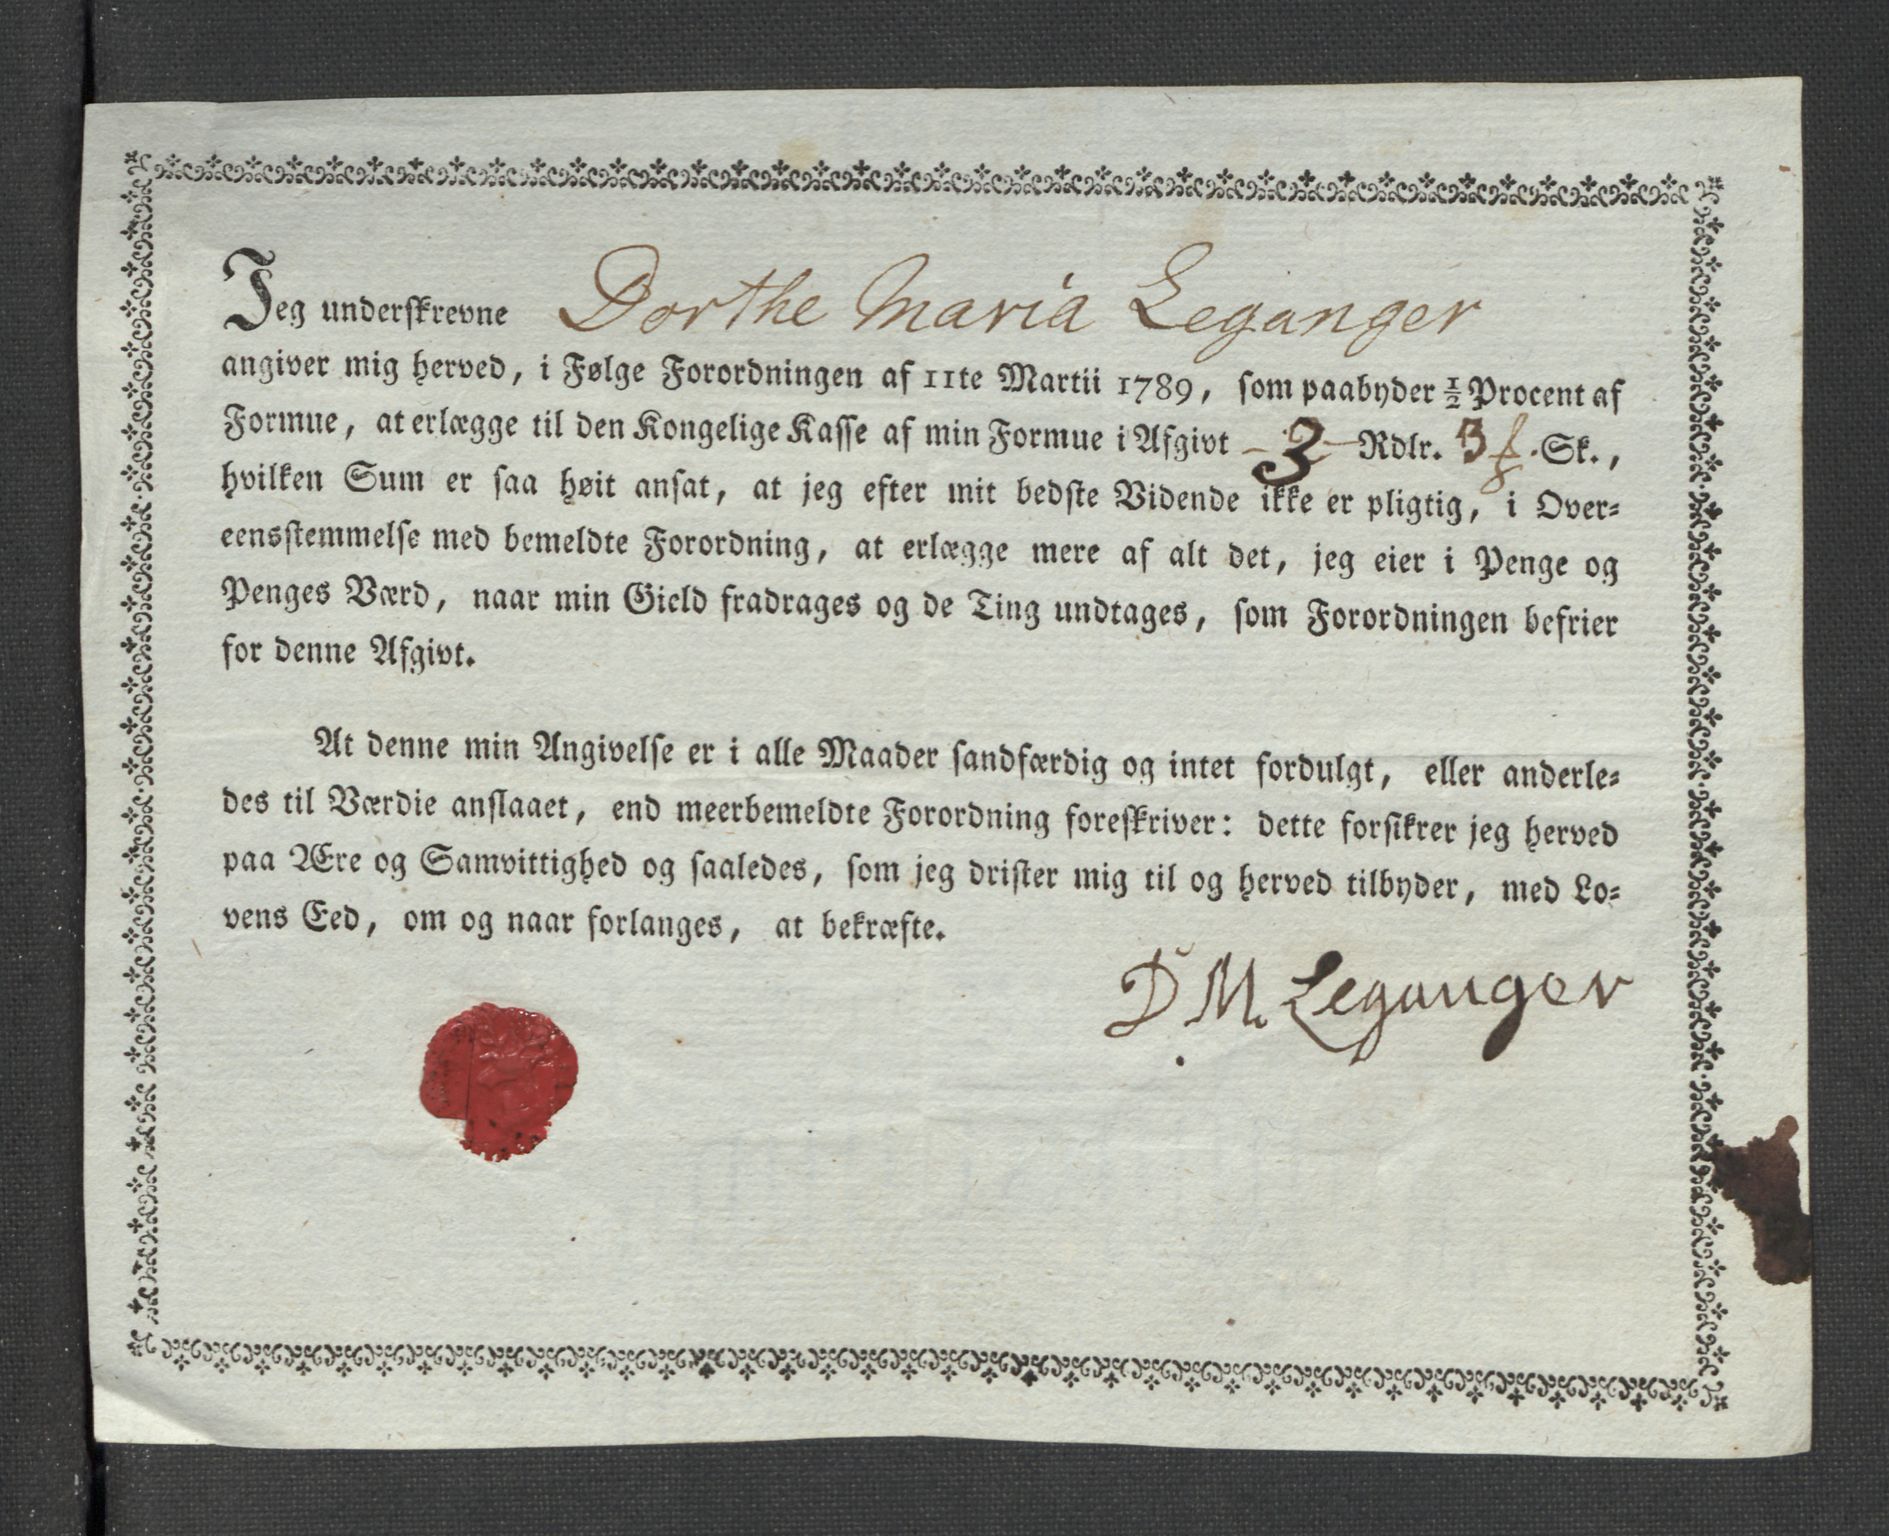 Jeg underskrevne Dorthe Maria Leganger
angiver mig herved, i Følge Forordningen af 11te Martii 1789, som paabyder ½ Procent af
Formue, at erlægge til den Kongelige Kasse af min Formue i Afgivt - 3 - Rdlr. Sk.,
hvilken Sum er saa høit ansat, at jeg efter mit bedste Vidende ikke er pligtig, i Over=
eensstemmelse med bemeldte Forordning, at erlægge mere af alt det, jeg eier i Penge og
Penges Værd, naar min Gield fradrages og de Ting undtages, som Forordningen befrier
for denne Afgivt.
At denne min Angivelse er i alle Maader sandfærdig og intet fordulgt, eller anderle=
des til Værdie anslaaet, end meerbemeldte Forordning foreskriver: dette forsikrer jeg herved
paa Ære og Samvittighed og saaledes, som jeg drister mig til og herved tilbyder, med Lo=
vens Eed, om og naar forlanges, at bekræfte.
D M. Leganger